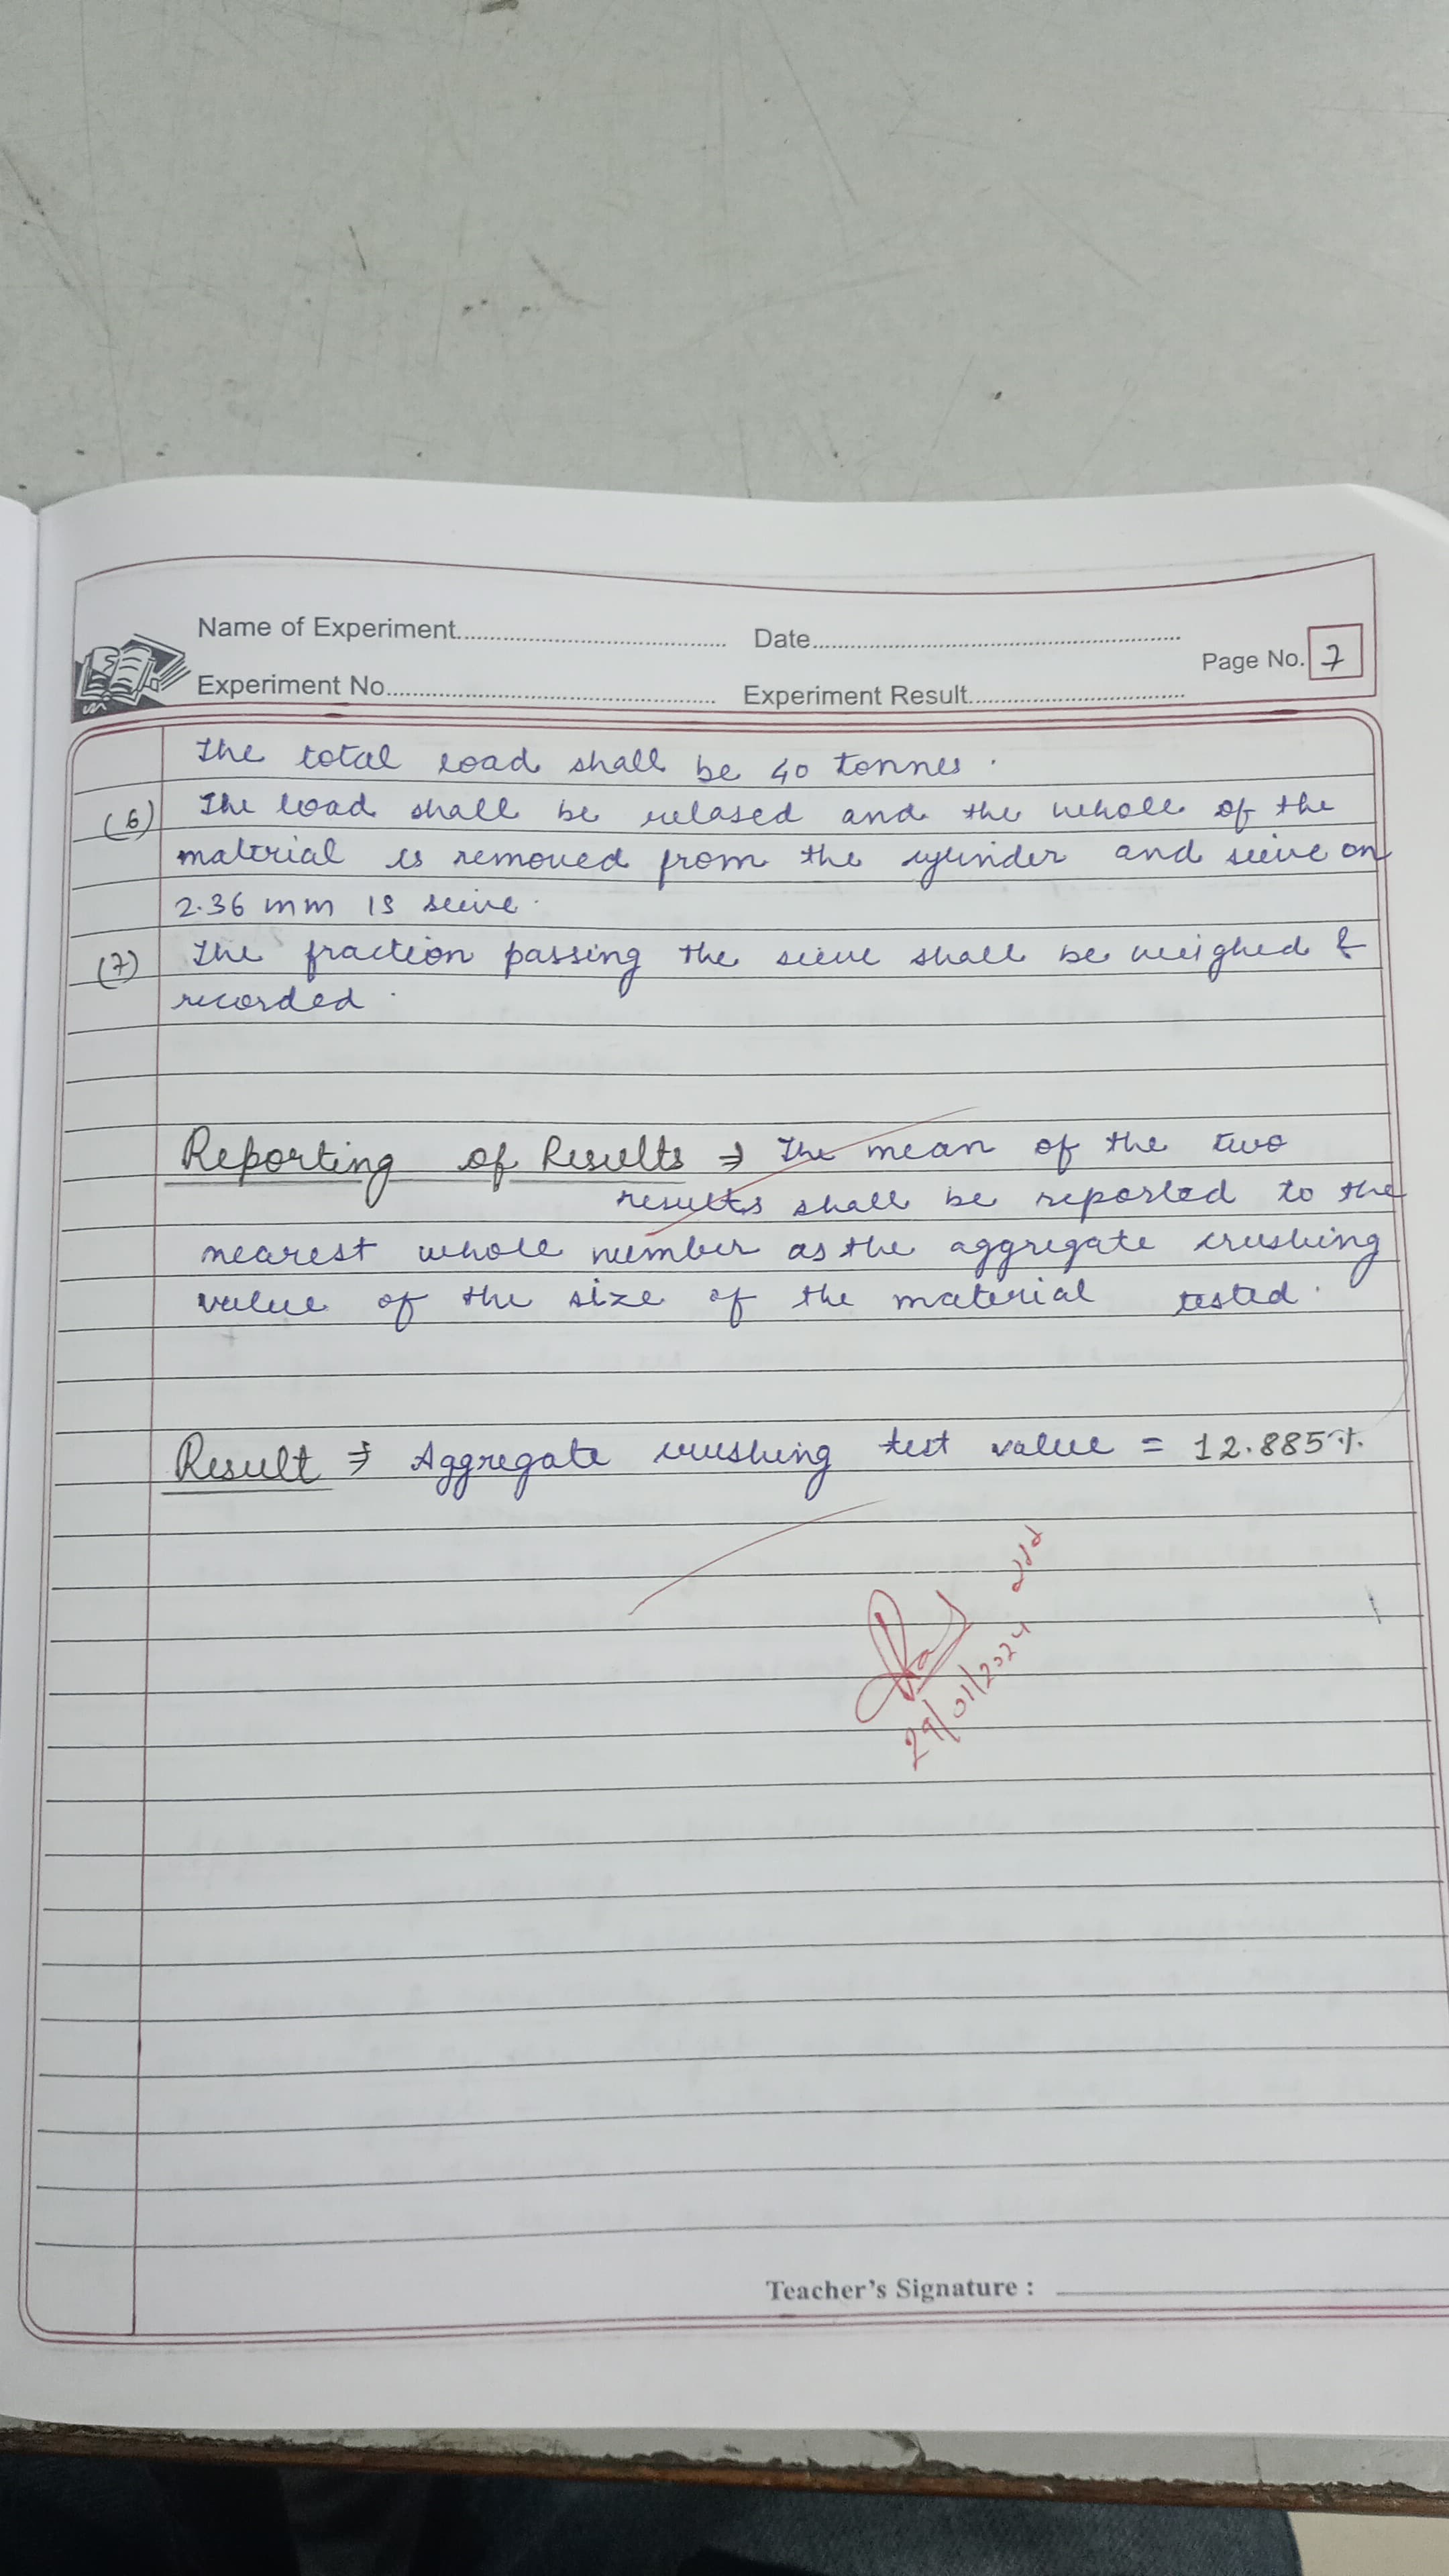 Name of Experiment.................... Date....................
Page No. 7
Experiment No.................... Experiment Result....................
The total load shall be 40 tonnes.
(6) The load shall be relased and the whole of the
material is removed from the cylinder and seive on
2.36 mm IS seive.
(7) The fraction passing the seive shall be weighed &
recorded.
Reporting of Results ⇒ The mean of the two
results shall be reported to the
nearest whole number as the aggregate crushing
value of the size of the material tested.
Result ⇒ Aggregate crushing test value = 12.885%.
29/01/2024
Teacher's Signature :